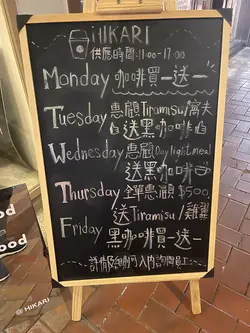 HIKARI
供應時間:11:00-17:00
Monday 咖啡買一送一
Tuesday 惠顧Tiramisu/窩夫
送黑咖啡
Wednesday 惠顧Daylight meal
送黑咖啡
Thursday 全單惠顧 $500
送Tiramisu/雞翼
Friday 黑咖啡買一送一
詳情
ood
@ HIKARI